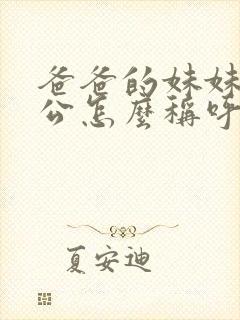 爸爸的妹妹
公怎麼稱呼
夏安迪